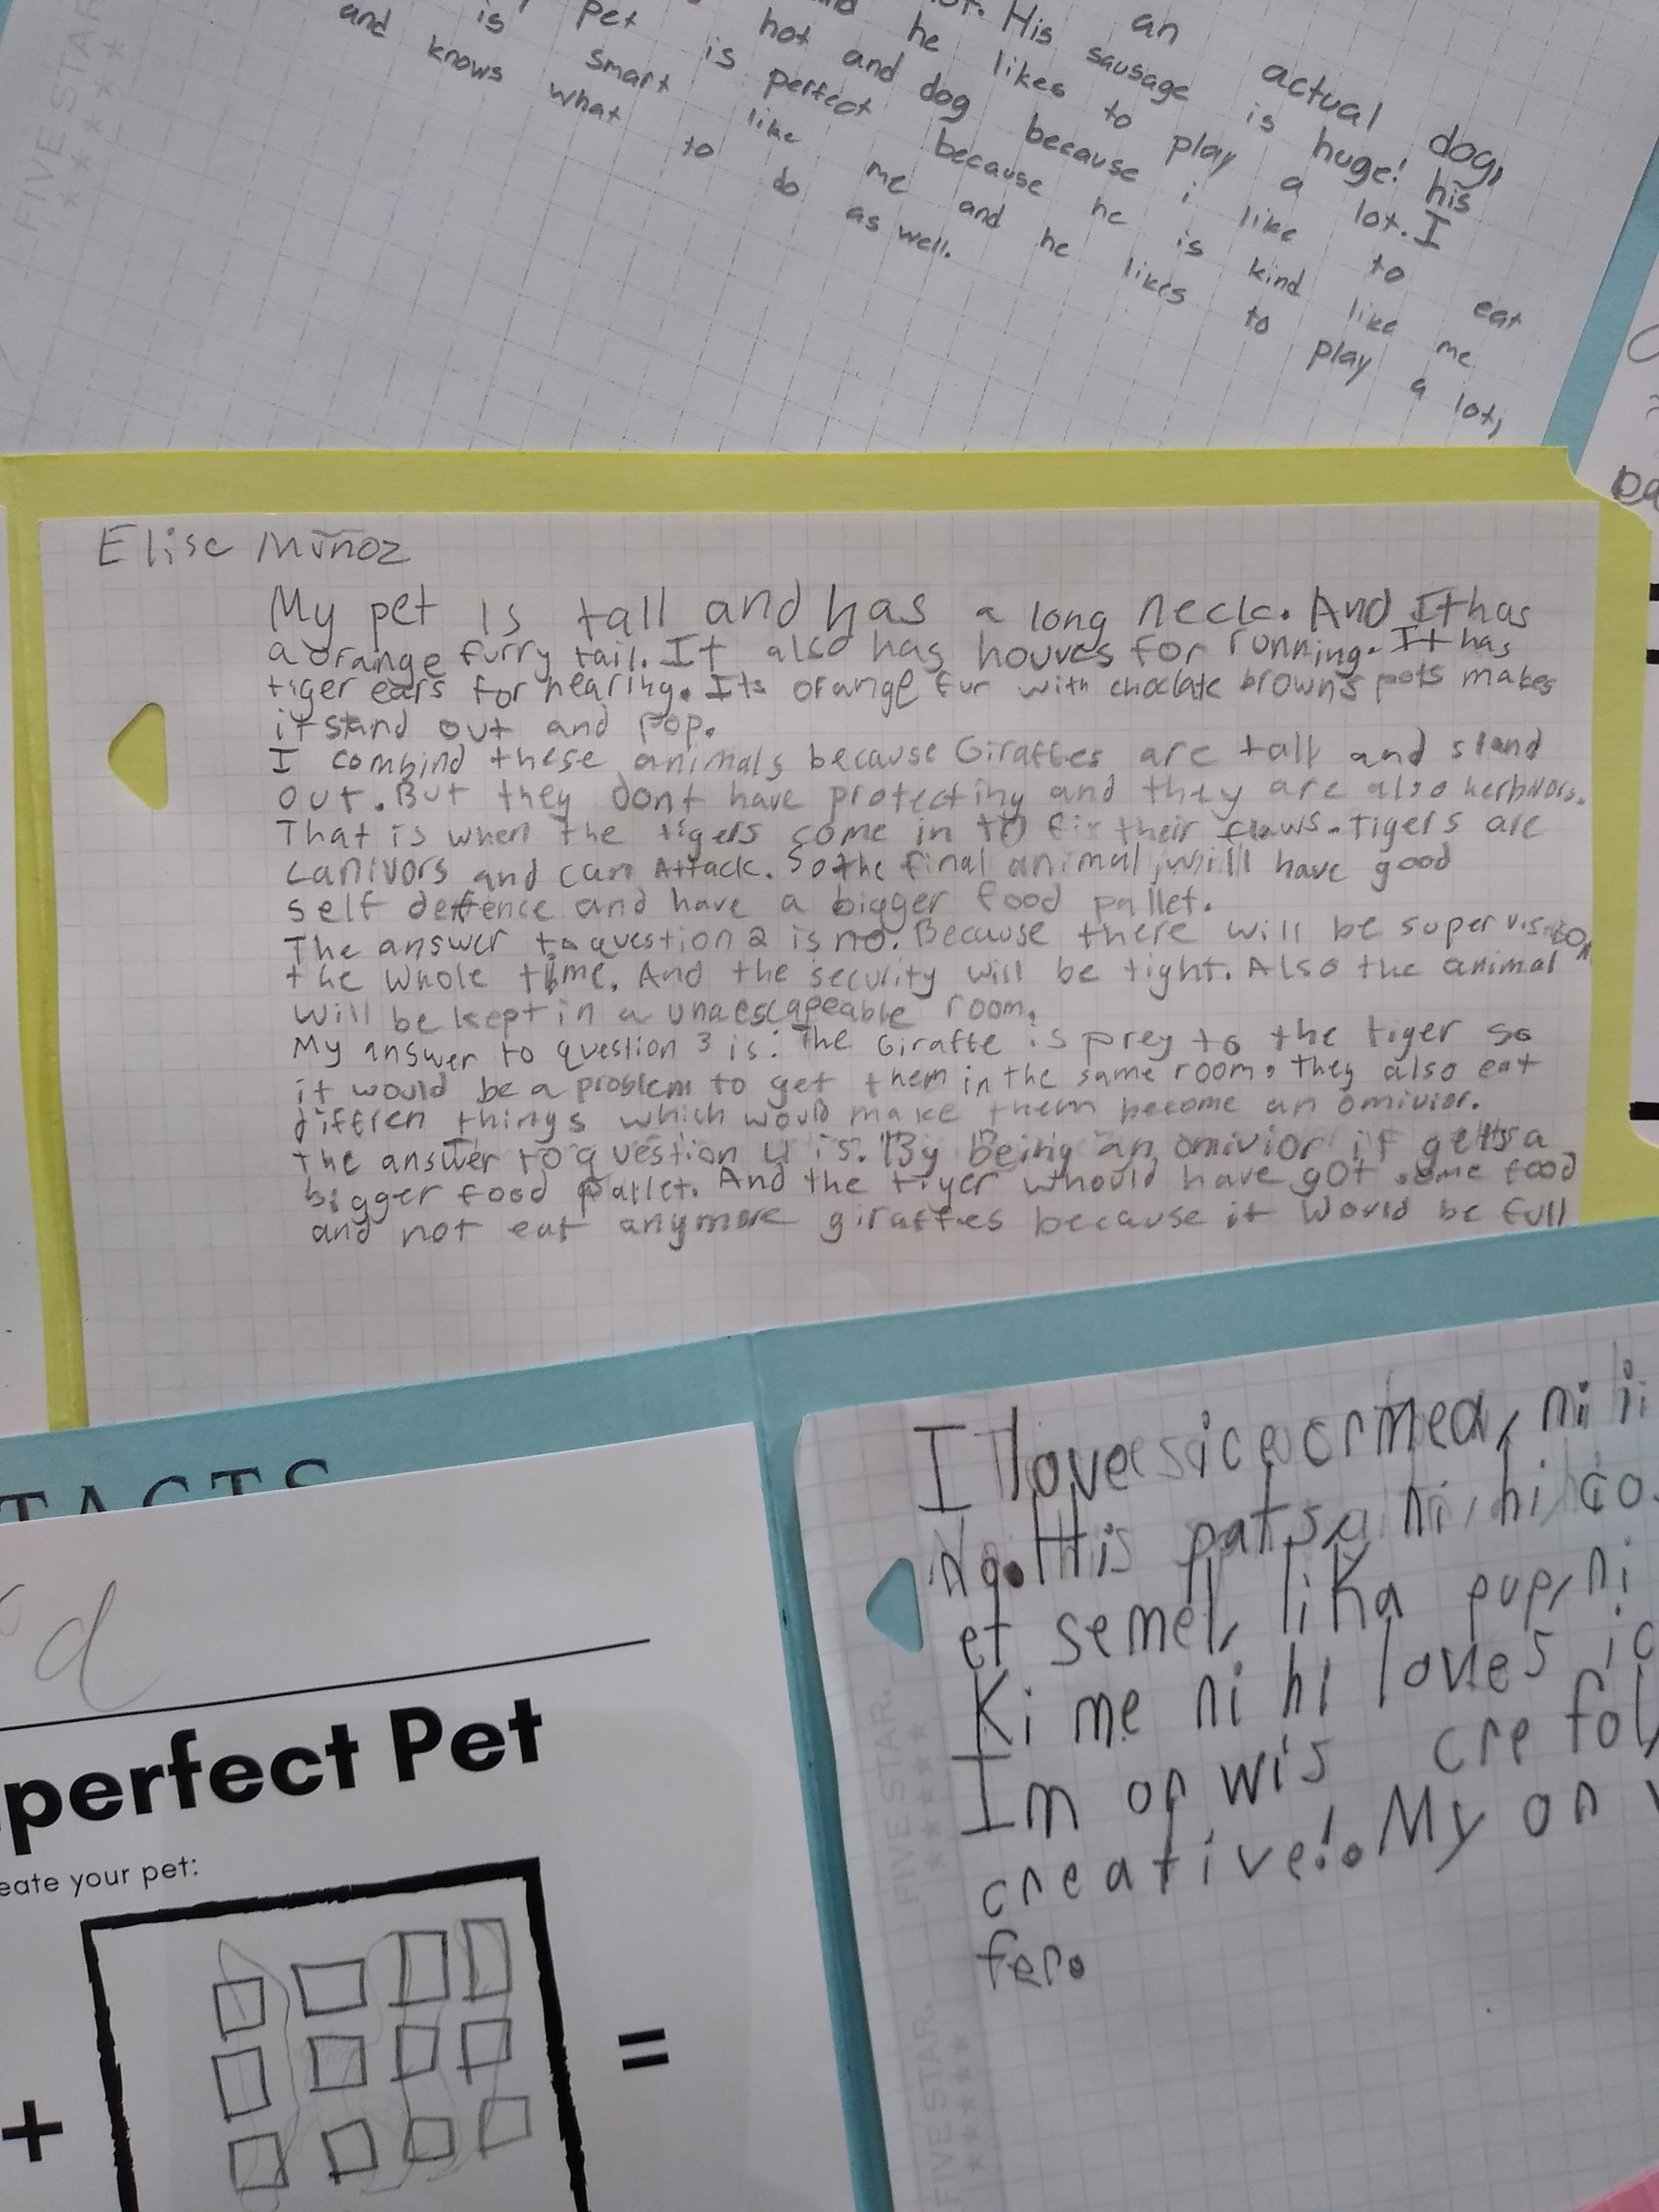 FIVE STAR
an actual dog,
His sausage is huge! his
he likes to play a lot. I
hot and dog because i like to eat
pet is perfect because he is kind like me
is smart like me and he likes to play a lot,
and knows what to do as well.
Elise Muñoz
My pet Is tall and has a long neck. And It has
a orange furry tail. It also has houves for running. It has
tiger ears for hearing. Its orange fur with choclate brown spots makes
it stand out and pop.
I combind these animals because Giraffes are tall and stand
out. But they dont have protecting and they are also herbivors.
That is when the tigers come in to fix their flaws. Tigers are
canivors and can Attack. So the final animal, will have good
self deffence and have a bigger food pallet.
The answer to question 2 is no. Because there will be supervision
the whole time. And the security will be tight. Also the animal
will be kept in a unaescapeable room.
My answer to question 3 is: The Giraffe is prey to the tiger so
it would be a problem to get them in the same room. They also eat
diffren things which would make them become an omivior.
The answer to question 4 is. By Being an omivior it gets a
bigger food pallet. And the tiger whould have got some food
and not eat anymore giraffes because it would be full
TACTS
d
perfect Pet
eate your pet:
+
=
I love
No. His
et semel, lika pup, ni
Ki me ni hi loves
Im on wis cre
creative!. My on
fer.
FIVE STAR.
FIVE STAR.